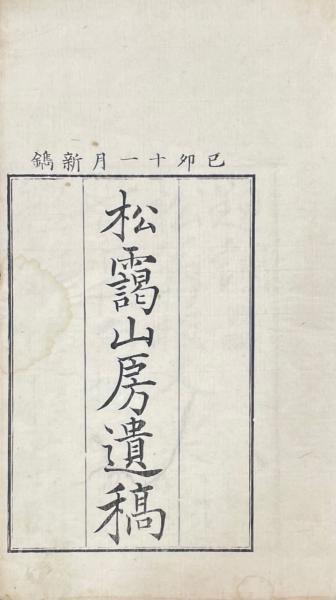 己卯十一月新鐫
松靄山房遺稿